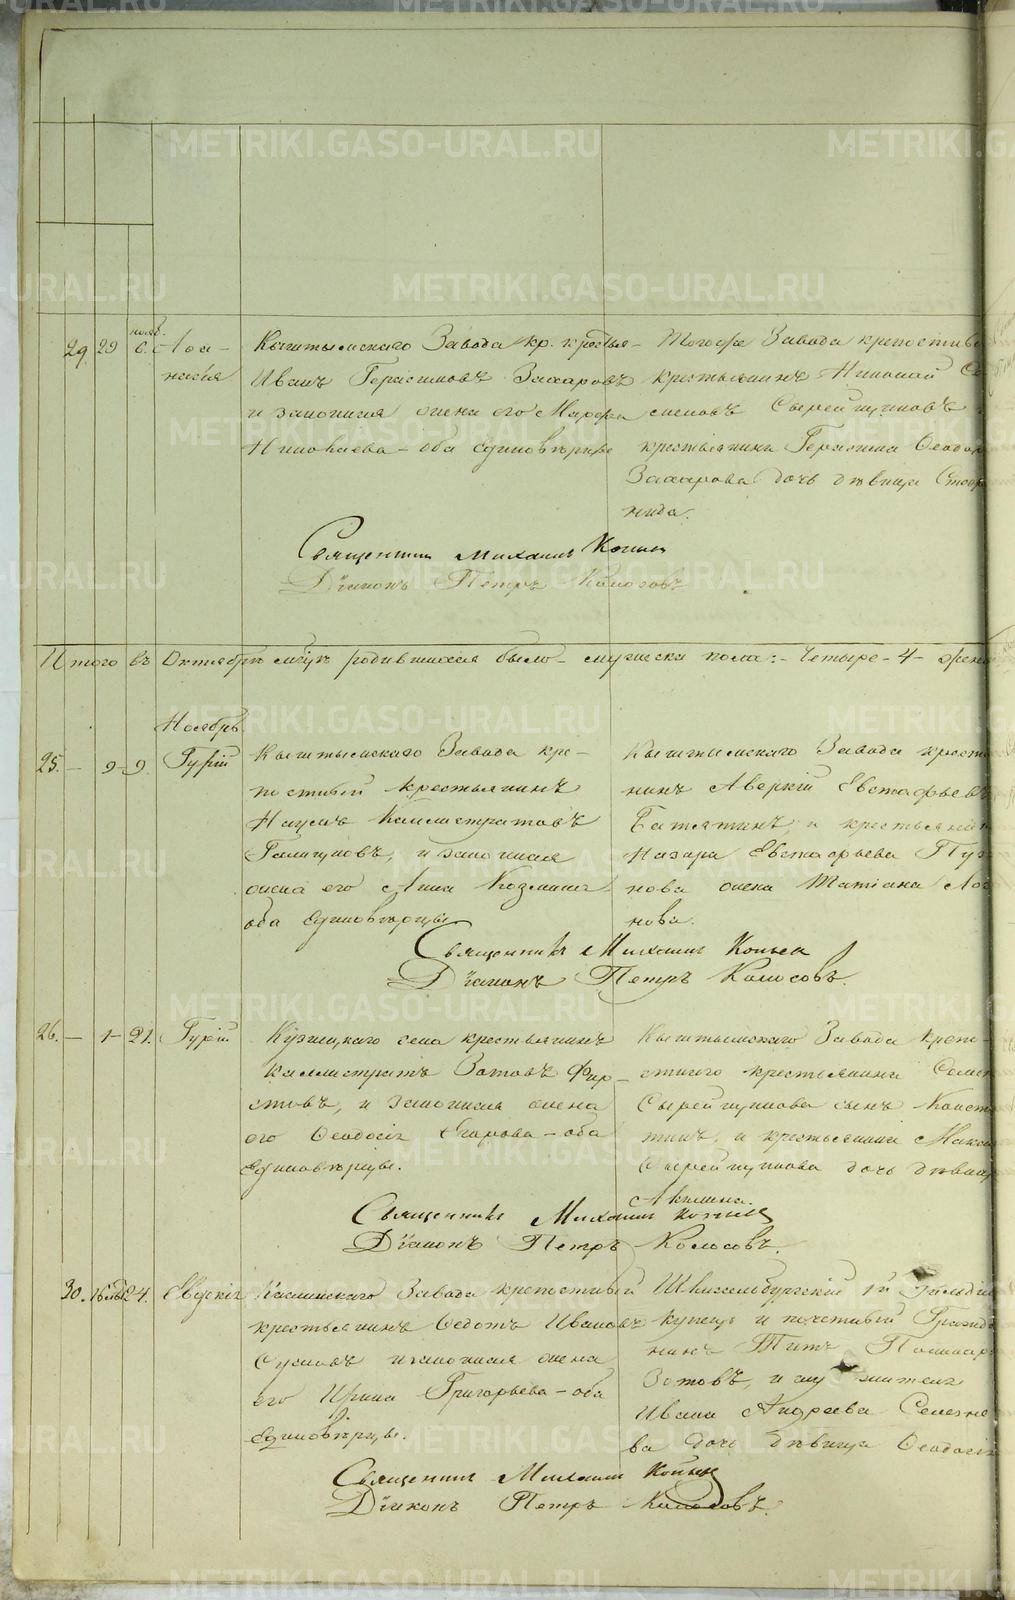 METRIKI.GASO-URAL.RU
29 29 нояб. 6. Аѳа-
насія
Кыштымскаго Завода кр. крестья-
Иванъ Герасимовъ Захаровъ
и законная жена его Марфа
Николаева - оба единовѣрцы
Тогоже Завода крѣпостный
крестьянинъ Николай
Сырейщиковъ
крестьянина Герасима Ѳеодор
Захарова дочь дѣвица Степа
нида.
Священникъ Михаилъ Копыл
Діаконъ Петръ Колосовъ
Итого въ Октябрѣ мѣсяцѣ родившихся было - мужеска пола: - Четыре - 4 - жен
Ноябрь.
25. - 9 - 9. Гурій
Кыштымскаго Завода крѣ-
постный крестьянинъ
Наумъ Каллистратовъ
Галицковъ, и законная
жена его Анна Козмина
оба Единовѣрцы
Кыштымскаго Завода крестья
нинъ Аверкій Евстафьевъ
Батятинъ, и крестьянин
Назара Евстафьева Пуз
нова жена Татіана Лог
нова.
Священникъ Михаилъ Копыл
Діаконъ Петръ Колосовъ.
26. - 1 - 21. Гурій
Кузнецкаго села крестьянинъ
Каллистратъ Зотовъ Фир
стовъ, и законная жена
его Ѳеодосія Егорова - оба
Единовѣрцы.
Кыштымскаго Завода крѣпо-
стнаго крестьянина Семен
Сырейщикова сынъ Конст
тинъ, и крестьянина Макси
Сырейщикова дочь дѣвица
Акилина.
Священникъ Михаилъ Копыл
Діаконъ Петръ Колосовъ.
30. 24. Евдокія
Каслинскаго Завода крѣпостный
крестьянинъ Ѳедотъ Ивановъ
Сусловъ и законная жена
его Ирина Григорьева - оба
Единовѣрцы.
Шлиссельбургскій 1й Гильдіи
купецъ и почетный Гражда
нинъ Титъ Поликар
Зотовъ, и
Ивана Андреева Селезне
ва дочь дѣвица Ѳеодосія
Священникъ Михаилъ Копыл
Діаконъ Петръ Колосовъ.